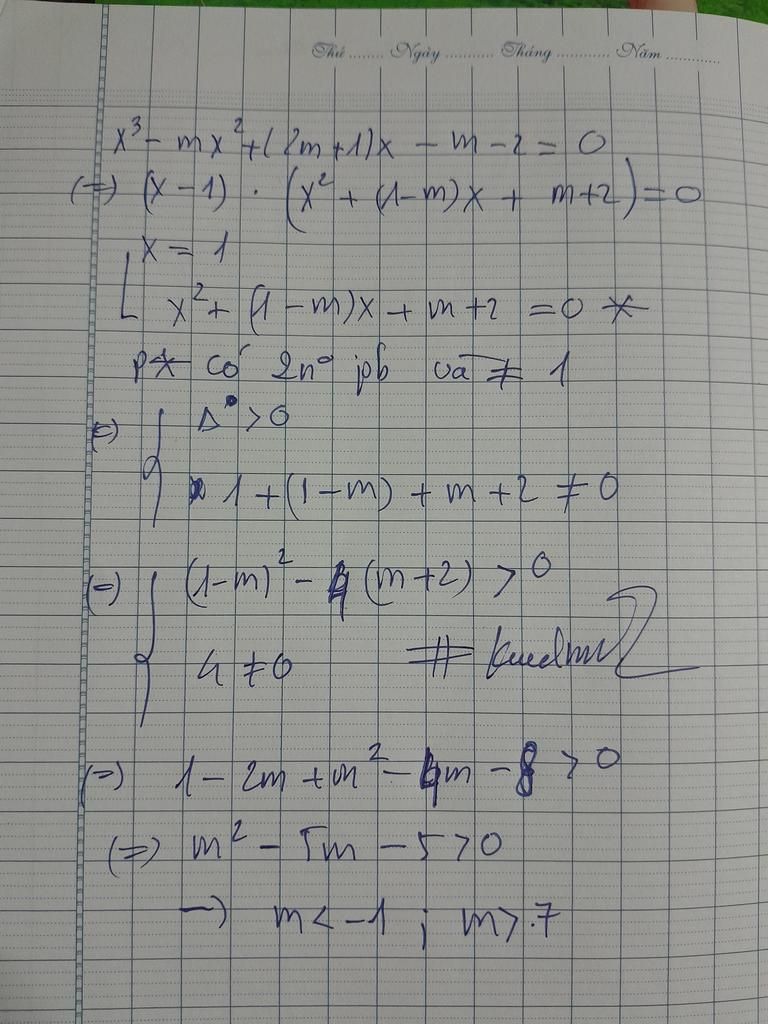 Thứ ........ Ngày ........... Tháng ............ Năm ............
x³ - mx² + (2m+1)x - m - 2 = 0
(=) (x - 1) . (x² + (1-m)x + m+2) = 0
[ x = 1
x² + (1 - m)x + m + 2 = 0 *
pt* có 2n⁰ pb và ≠ 1
(=) { Δ > 0
1 + (1 - m) + m + 2 ≠ 0
(=) { (1-m)² - 4(m+2) > 0
4 ≠ 0 #
(=) 1 - 2m + m² - 4m - 8 > 0
(=) m² - 5m - 5 > 0
→ m < -1 ; m > 7